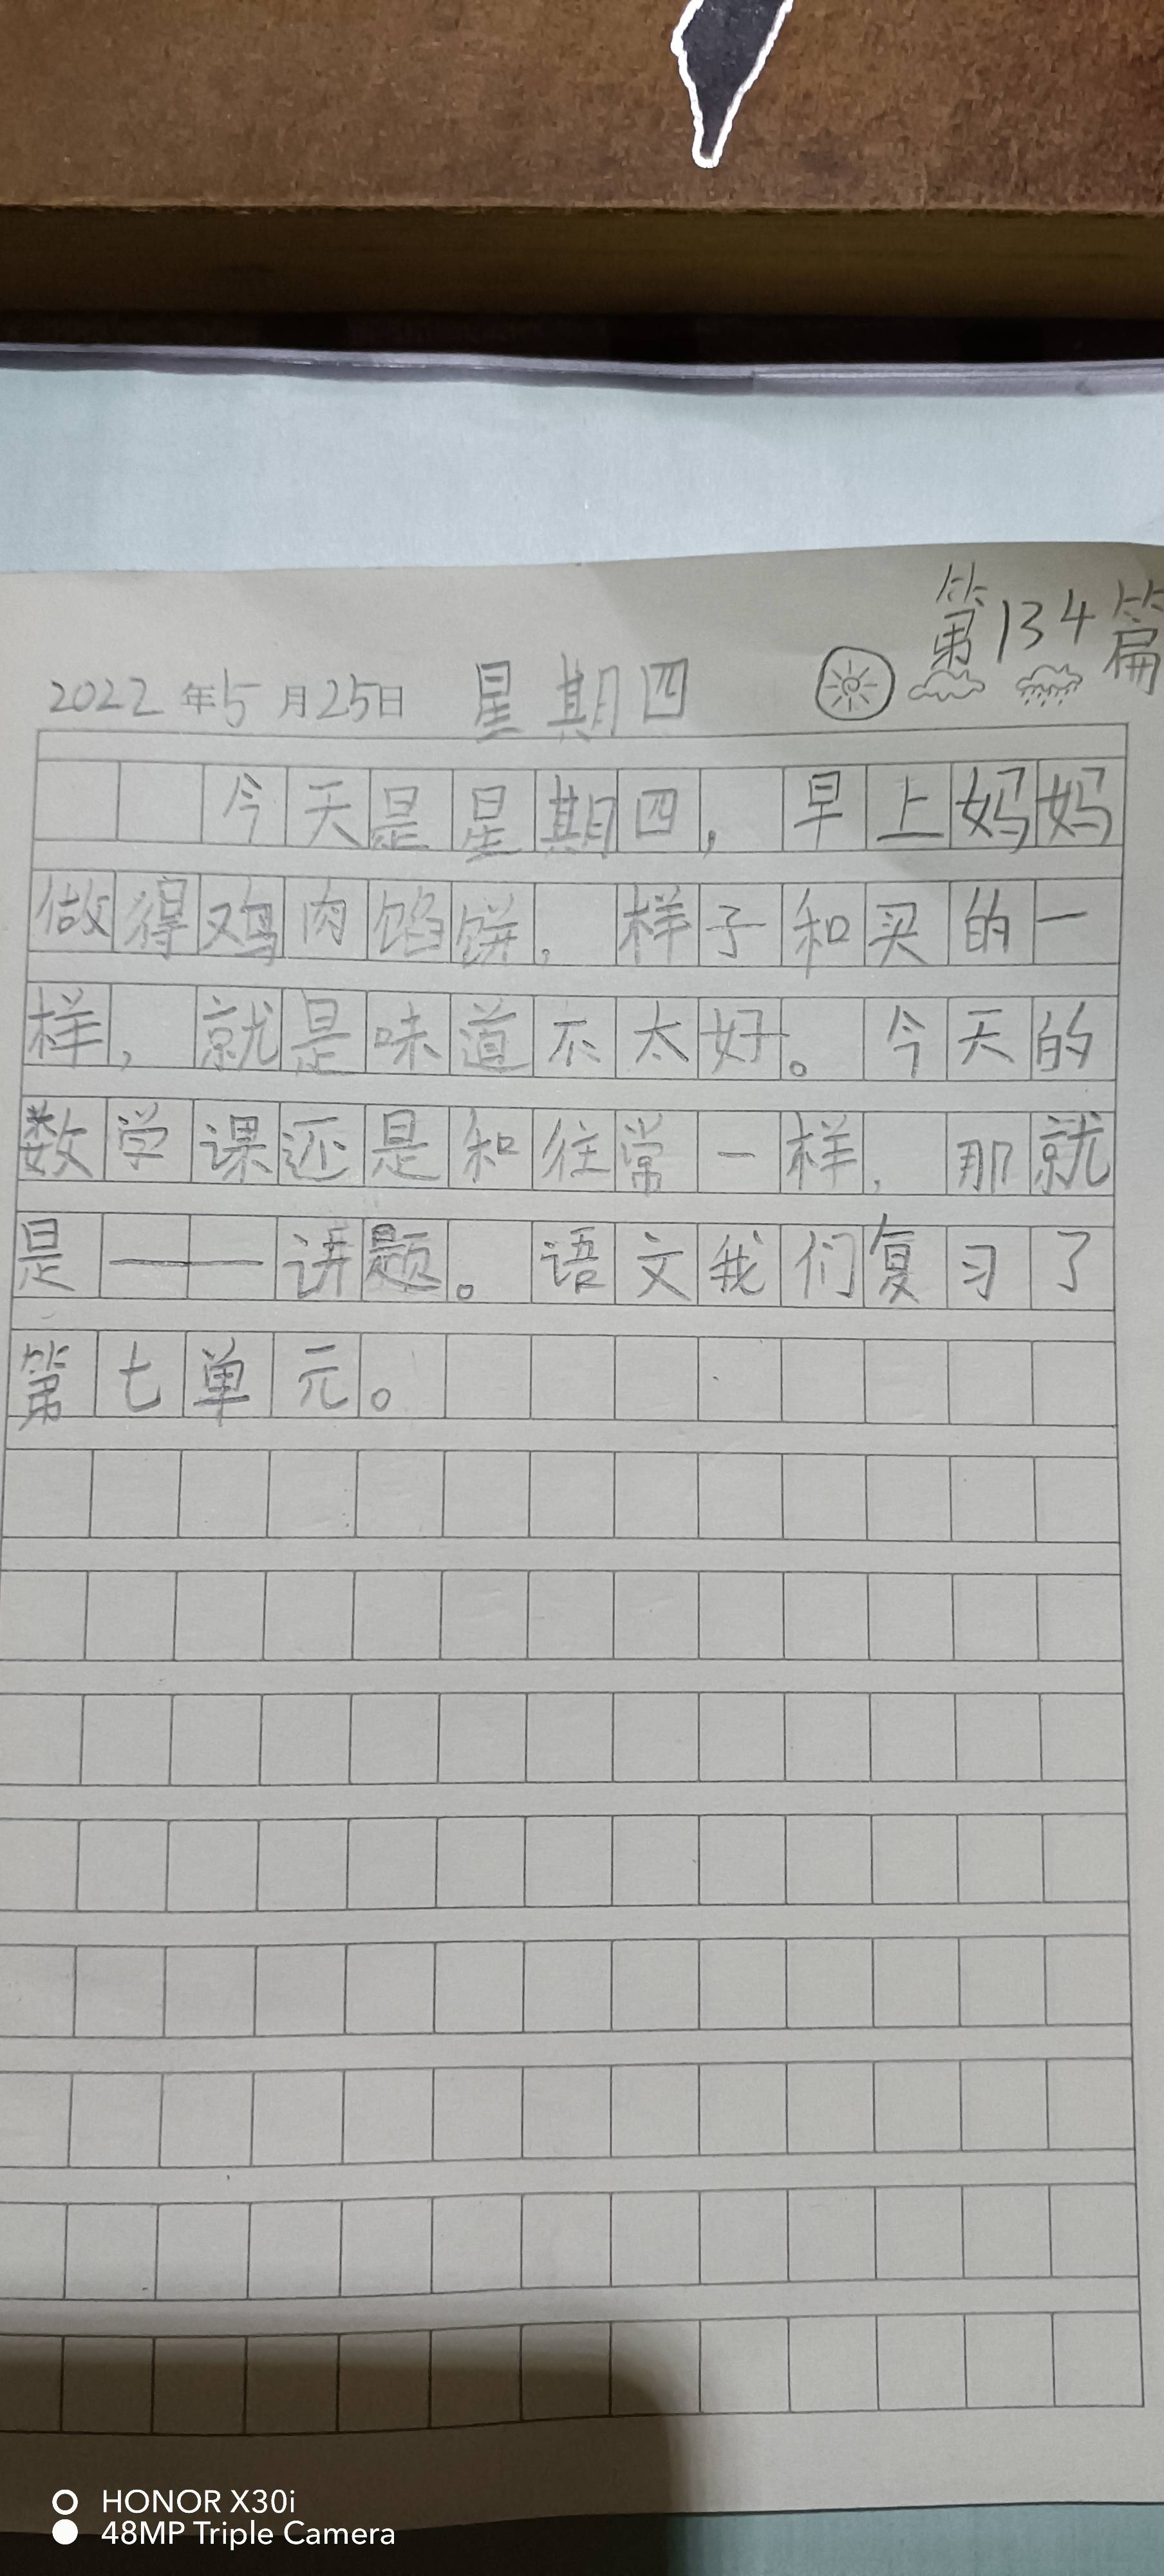 第134篇
2022年5月25日 星期四
今天是星期四，早上妈妈
做得鸡肉馅饼，样子和买的一
样，就是味道不太好。今天的
数学课还是和往常一样，那就
是——讲题。语文我们复习了
第七单元。
HONOR X30i
48MP Triple Camera